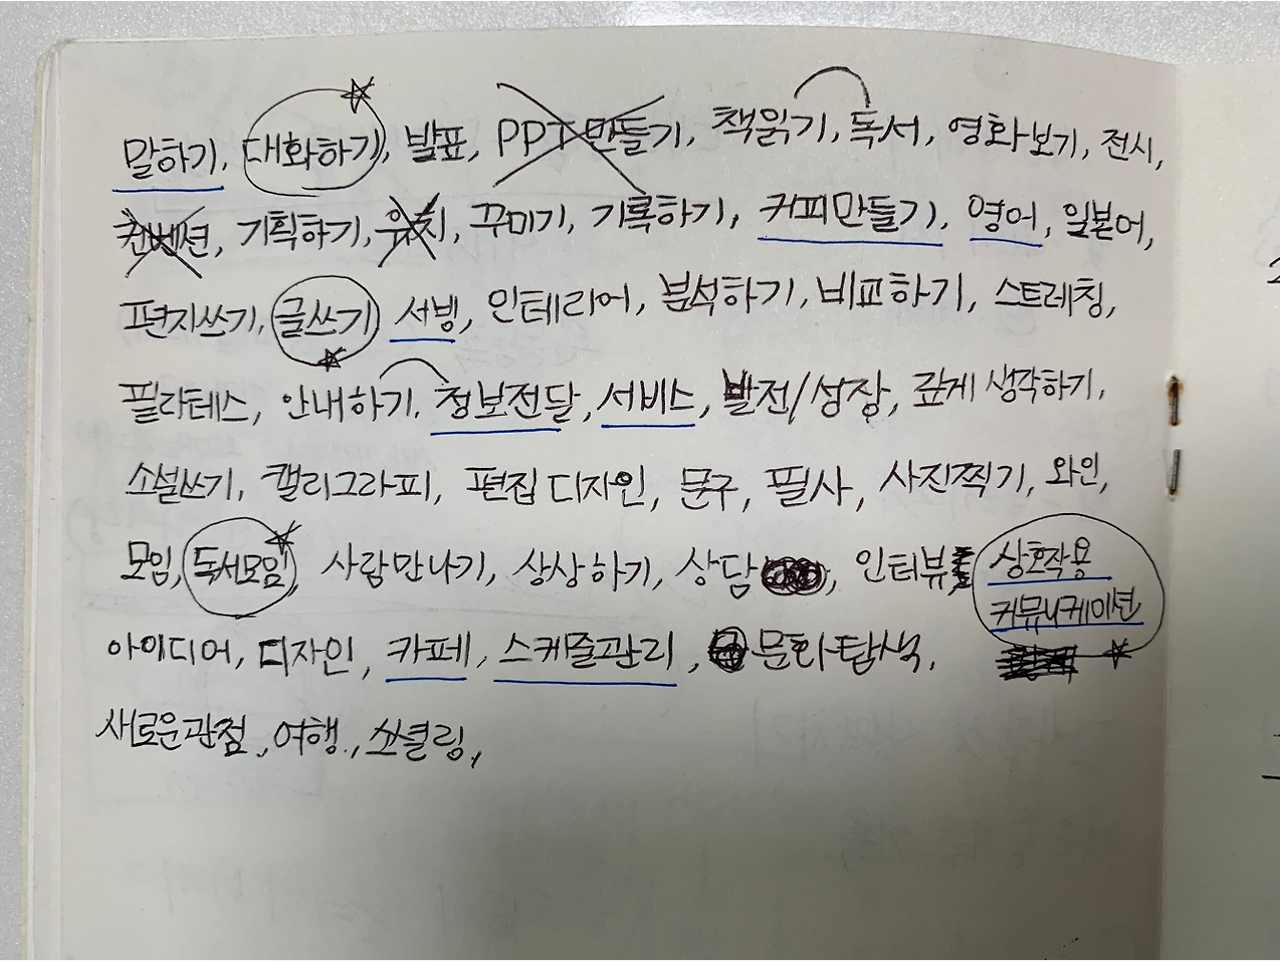 말하기, 대화하기, 발표, PPT 만들기, 책읽기, 독서, 영화보기, 전시,
컨벤션, 기획하기, 유치, 꾸미기, 기록하기, 커피만들기, 영어, 일본어,
편지쓰기, 글쓰기, 서빙, 인테리어, 분석하기, 비교하기, 스트레칭,
필라테스, 안내하기, 정보전달, 서비스, 발전/성장, 깊게 생각하기,
소설쓰기, 캘리그라피, 편집 디자인, 문구, 필사, 사진찍기, 와인,
모임, 독서모임, 사람만나기, 상상하기, 상담, 인터뷰, 상호작용
커뮤니케이션
아이디어, 디자인, 카페, 스케줄관리, 문화탐색,
새로운관점, 여행, 소셜링,